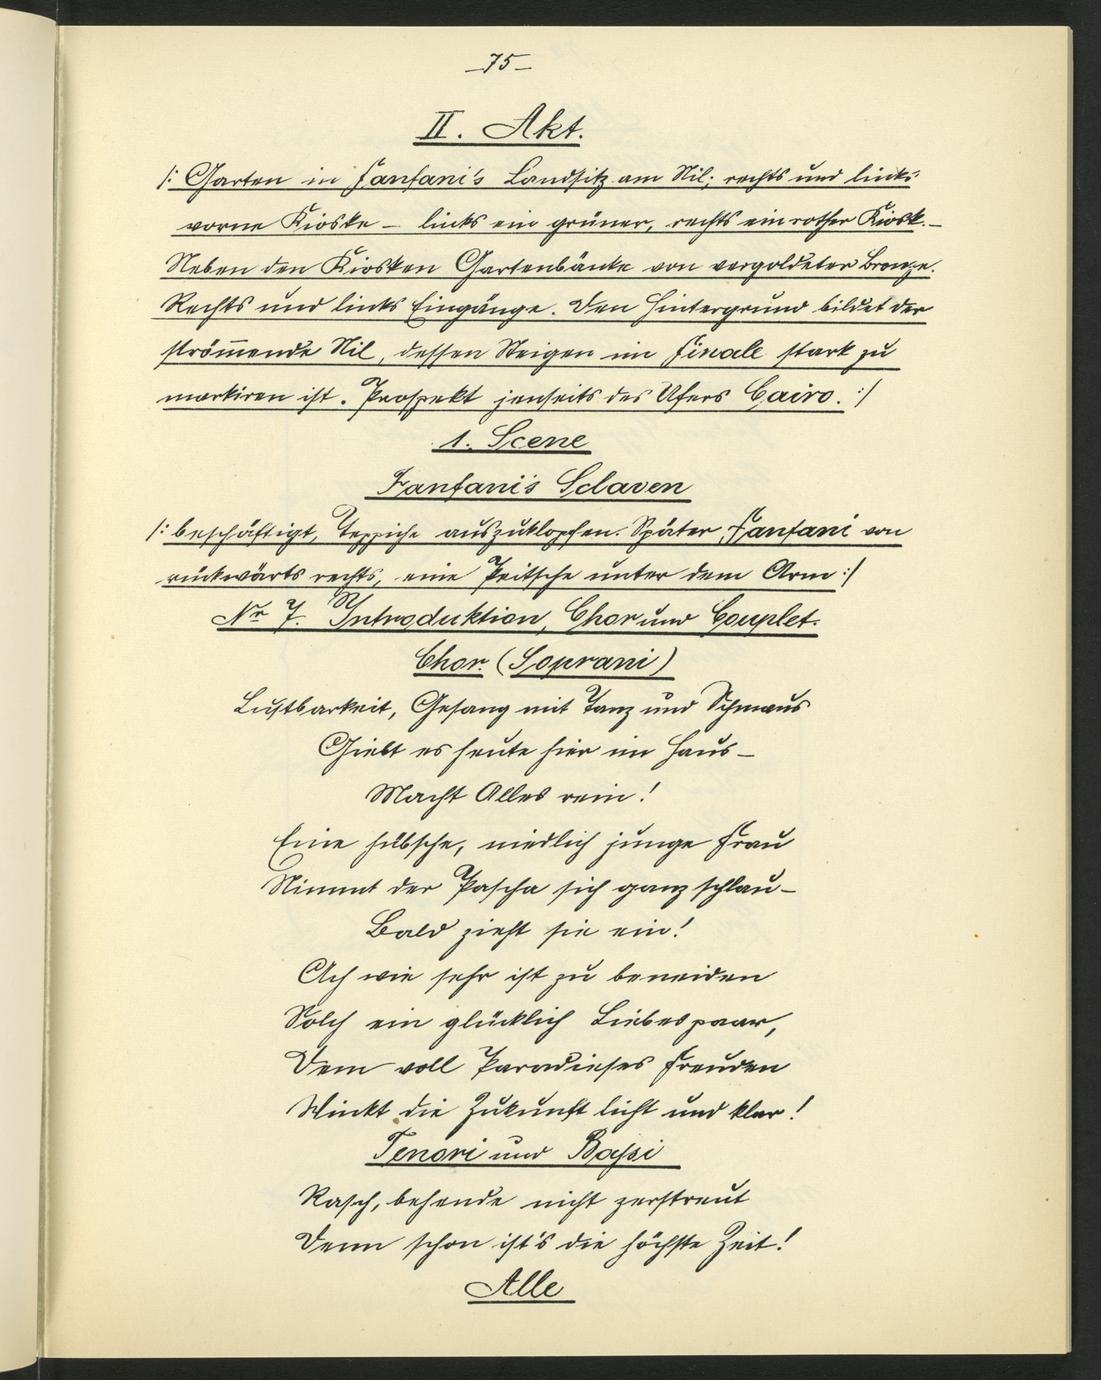 —75—
II. Akt.
/: Garten in Fanfani's Landsitz am Nil; rechts und links
vorne Kioske – links ein grüner, rechts ein rother Kiosk. –
Neben den Kiosken Gartenbänke von vergoldeter Bronze.
Rechts und links Eingänge. Den Hintergrund bildet der
strömende Nil, dessen Steigen im Finale stark zu
markiren ist. Prospekt jenseits des Ufers Cairo. :/
1. Scene
Fanfani's Sclaven
/: beschäftigt, Teppiche auszuklopfen. Später Fanfani von
rückwärts rechts, eine Peitsche unter dem Arm :/
Nr 7. Introduktion, Chor und Couplet.
Chor. (Soprani)
Lustbarkeit, Gesang mit Tanz und Schmaus
Giebt es heute hier im Haus –
Macht Alles rein!
Eine hübsche, niedlich junge Frau
Nimmt der Pascha sich ganz schlau –
Bald zieht sie ein!
Ach wie sehr ist zu beneiden
Solch ein glücklich Liebespaar,
Dem voll Paradieses Freuden
Winkt die Zukunft licht und klar!
Tenori und Bassi
Rasch, behende nicht zerstreut
Denn schon ist's die höchste Zeit!
Alle